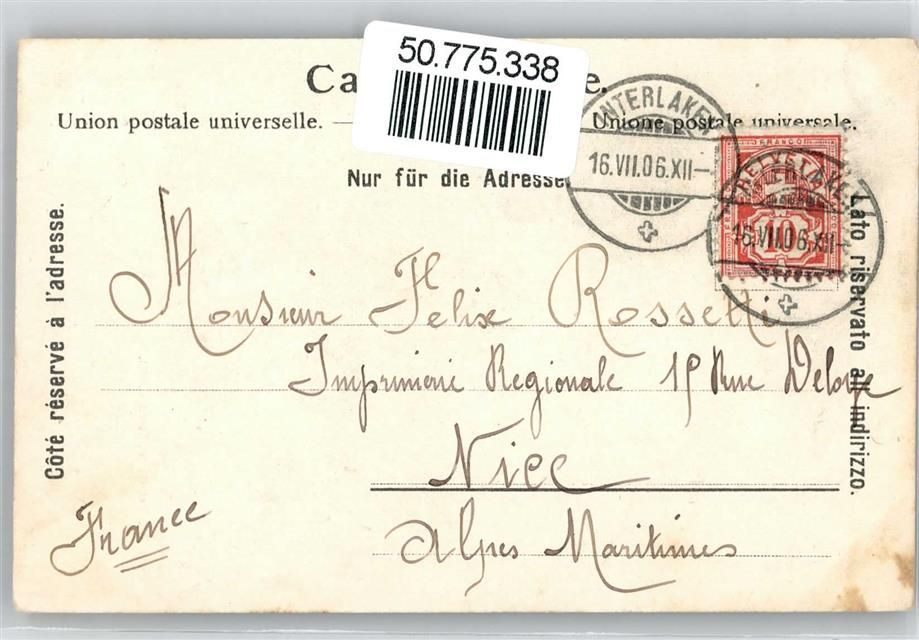 50.775.338
Union postale universelle. — Unione postale universale.
Nur für die Adresse
Côté réservé à l'adresse.
Lato riservato all' indirizzo.
INTERLAKEN
16.VII.06.XII—
FRANCO
HELVETIA
10
16.VII.06.XII—
Monsieur Felix Rossetti
Imprimerie Regionale Rue Deloye
Nice
Alpes Maritimes
France